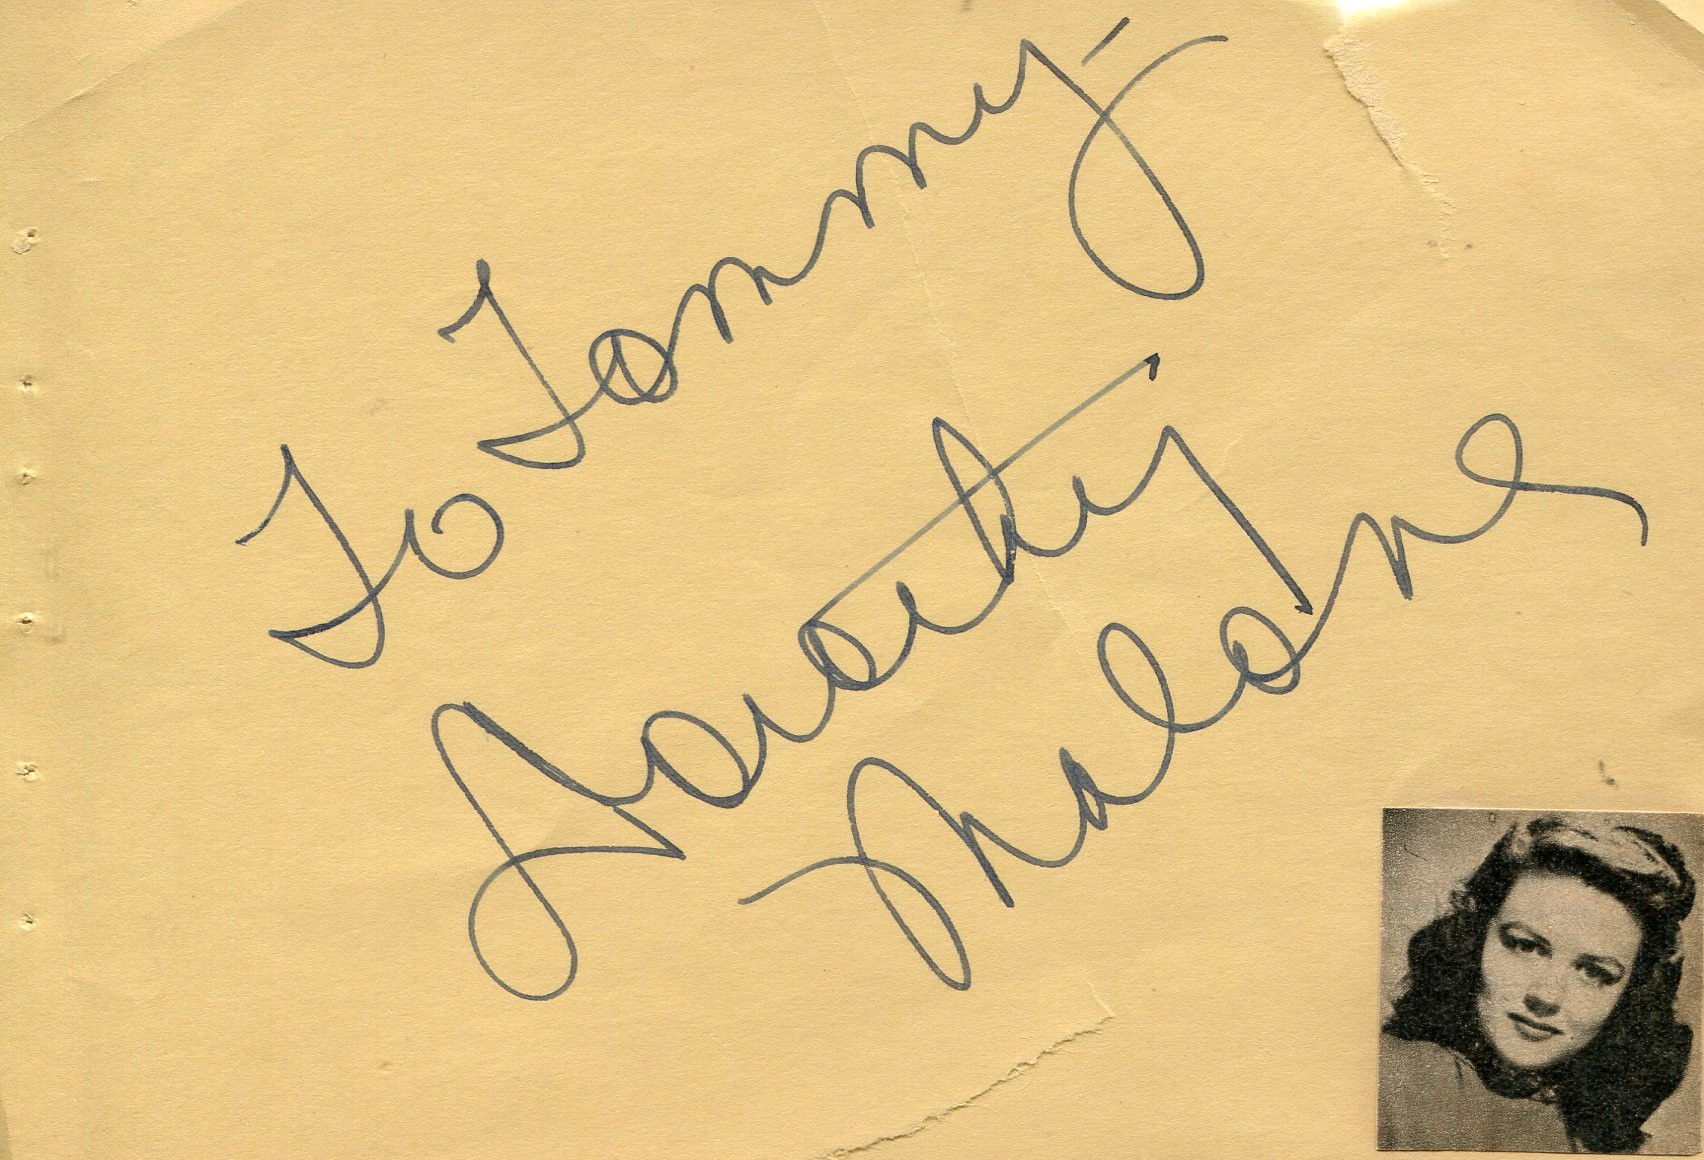 To Tommy -
Dorothy
Malone